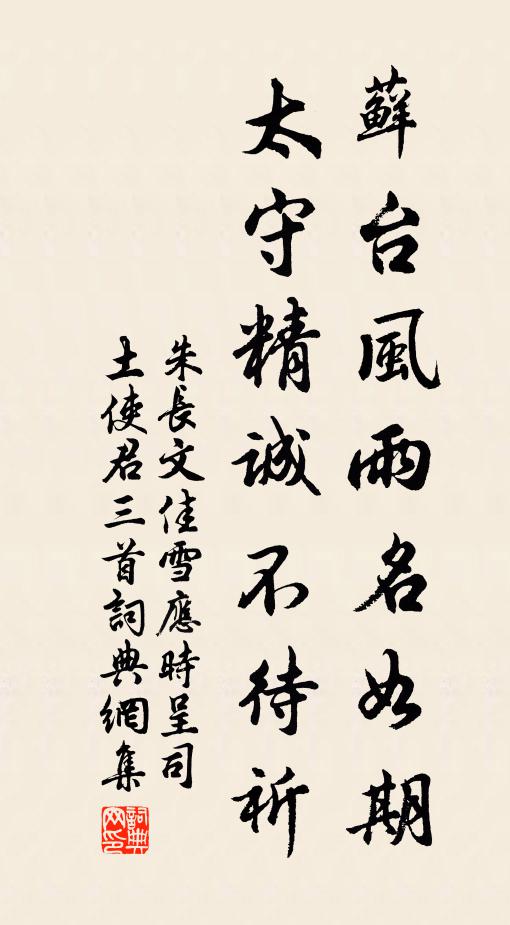 蘚台風雨名如期
太守精誠不待祈
朱長文佳雪應時呈司
土使君三首詞典網集
詞典
网印